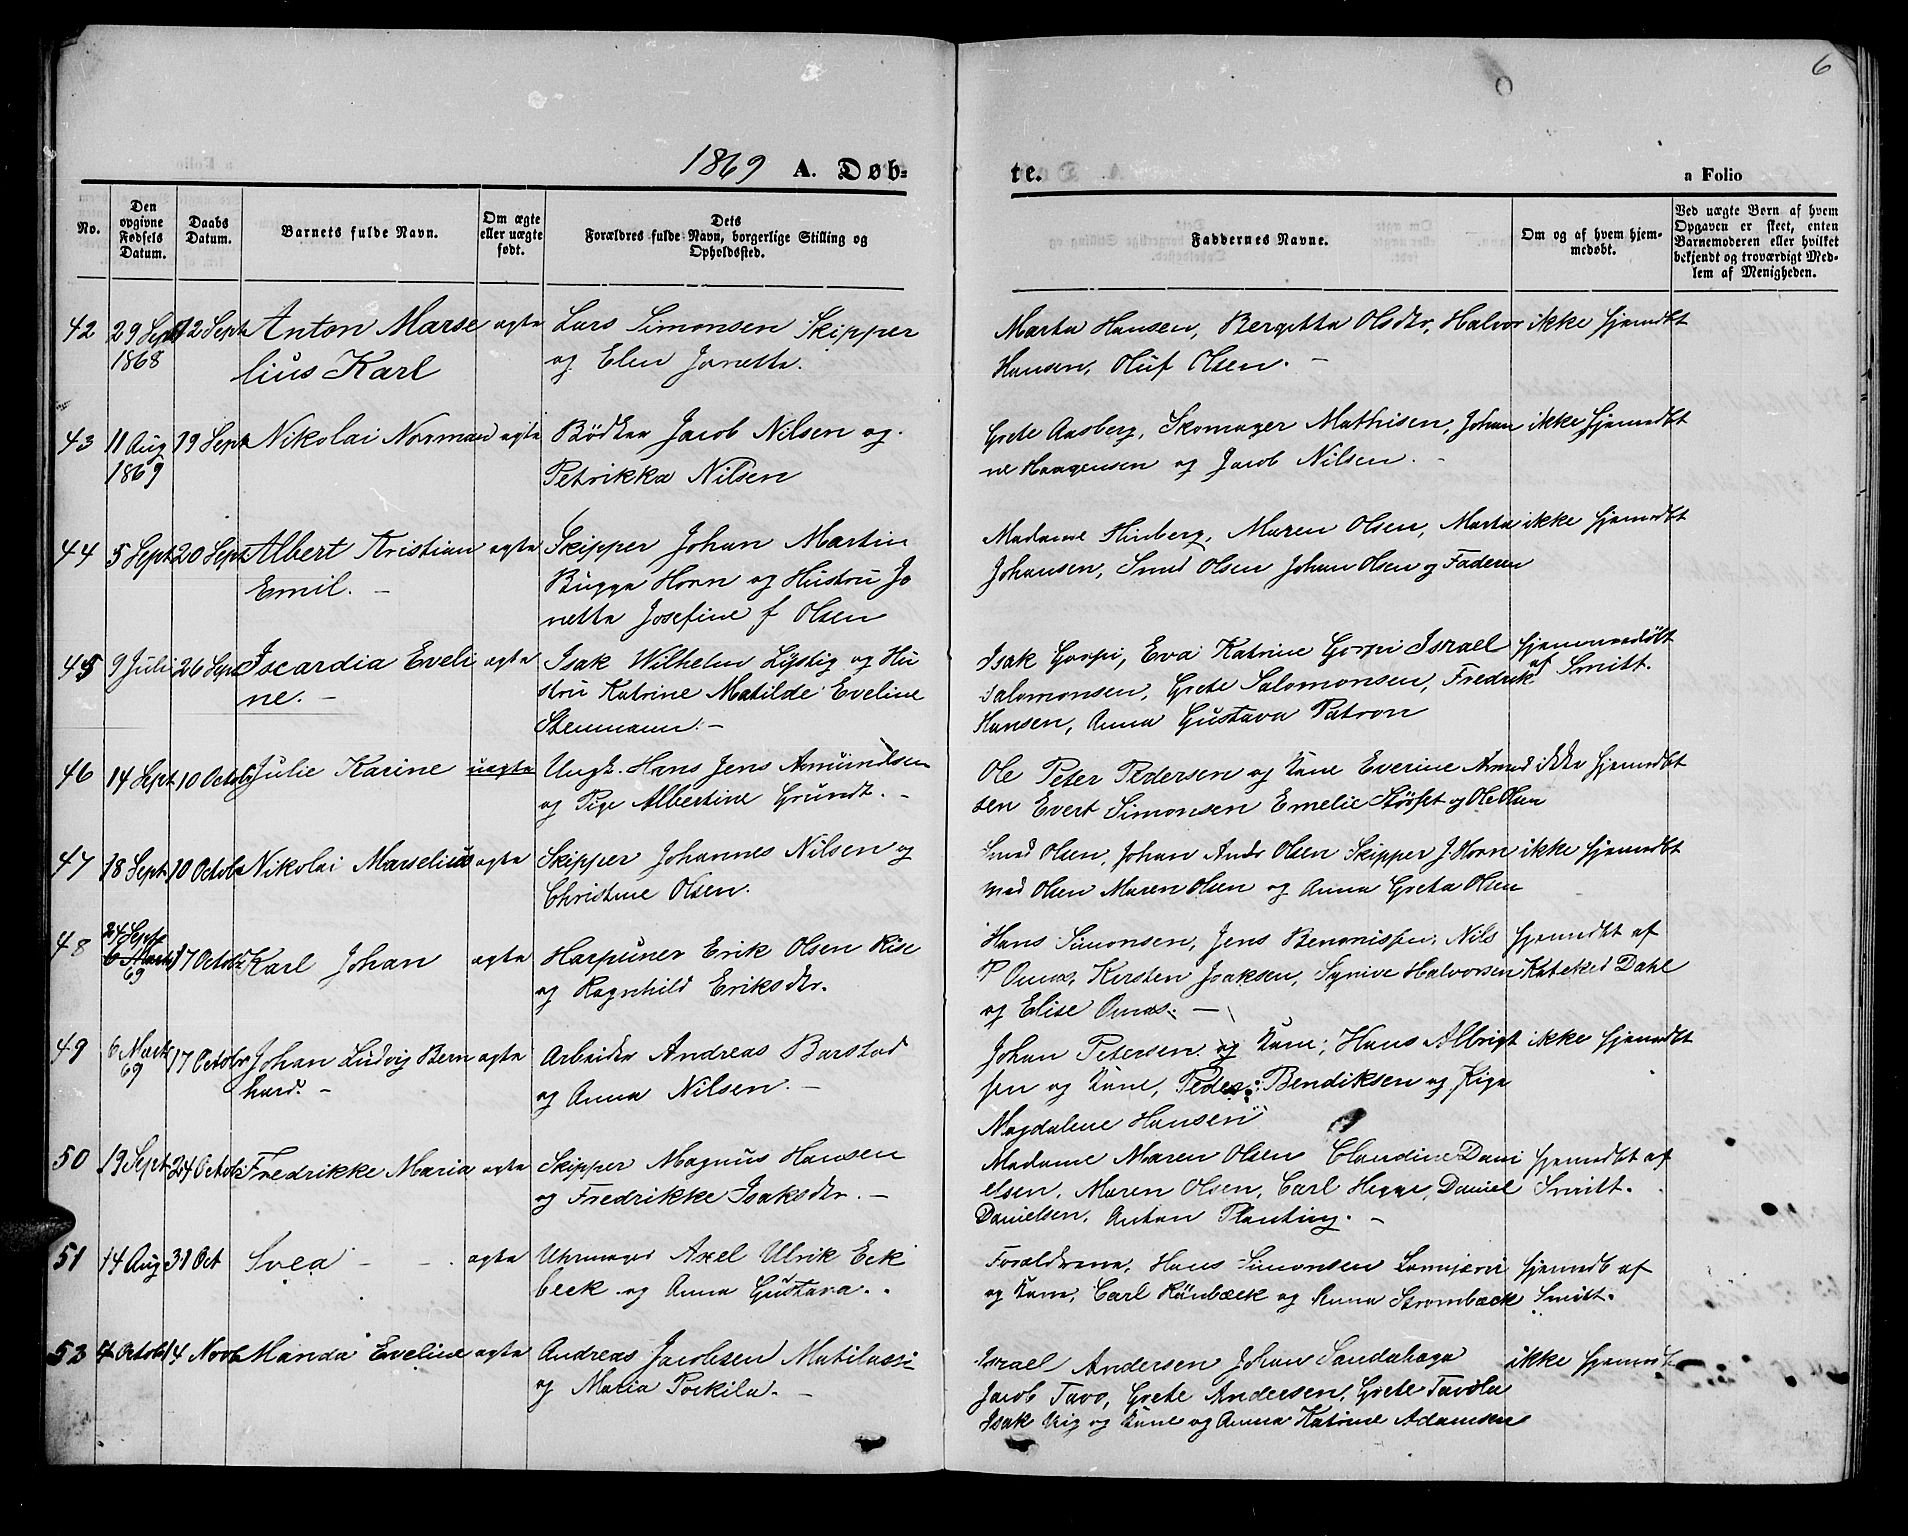 6
1869 A. Døb-
te.
a Folio
No.
Den opgivne Fødsels Datum.
Daabs Datum.
Barnets fulde Navn.
Om ægte eller uægte født.
Dets Forældres fulde Navn, borgerlige Stilling og Opholdssted.
Faddernes Navne.
Om og af hvem hjemmedøbt.
Ved uægte Børn af hvem Opgaven er skeet, enten Barnemoderen eller hvilket bekjendt og troværdigt Medlem af Menigheden.
42 29 Sept 12 Sept Anton Marse ægte Lars Simonsen Skipper Marta Hansen, Bergitta Olsdtr, Halvor ikke hjemdbt
1868 lius Karl og Elen Jonetta. Hansen, Oluf Olsen. –
43 11 Aug 19 Sept Nikolai Norman ægte Bödker Jacob Nilsen og Grete Aasberg, Skomager Mathisen, Johan ikke hjemdbt
1869 Petrikka Nilsen ne Haagensen og Jacob Nilsen. –
44 5 Sept 20 Sept Albert Kristian ægte Skipper Johan Martin Madame Hinberg, Maren Olsen, Marta ikke hjemdbt
Emil. – Bugge Horn og Hustru Jo Johansen, Smed Olsen Johan Olsen og Faderen
netta Josefine f Olsen
45 9 Juli 26 Sept Iscardia Eveli ægte Isak Wilhelm Lipstig og Hu Isak Gorpi, Eva Katrine Gorpi Israel hjemmedöbt
ne. – stru Katrine Matilde Eveline Salomonsen, Grete Salomonsen, Fredrik af Smitt.
Stenmann. – Hansen, Anna Gustava Patron
46 14 Sept 10 Octob Julie Karine uægte Ungk. Hans Jens Amundsen Ole Peter Pedersen og Kone Everine Amund ikke hjemdbt
og Pige Albertine Grundt. – sen Evert Simonsen Emelie Størset og Ole Olsen
47 18 Sept 10 Octobr Nikolai Marselius ægte Skipper Johannes Nilsen og Smed Olsen, Johan Andr Olsen Skipper J. Horn ikke hjemdbt
Christine Olsen. Mad Olsen Maren Olsen og Anna Greta Olsen
48 24 Sept 17 Octob Karl Johan ægte Harpuner Erik Olsen Rise Hans Simonsen, Jens Benonisen, Nils hjemdbt af
6 Marts 69 og Ragnhild Eriksdtr. P Omas, Kirsten Isaksen, Synive Halvorsen Kateket Dahl
og Elise Omas. –
49 6 Mark 17 Octobr Johan Ludvig Bern ægte Arbeider Andreas Barstad Johan Petersen og Kone, Hans Albrigt ikke hjemdbt
69 hard. – og Anna Nilsen. – sen og Kone, Peder Bendiksen og Pige
Magdalene Hansen
50 19 Sept 24 Octob Fredrikke Maria ægte Skipper Magnus Hansen Madame Maren Olsen Claudine Dani hjemdbt af
og Fredrikke Isaksdtr. – elsen, Maren Olsen, Carl Hegge, Daniel Smitt.
Danielsen, Anton Planting. –
51 14 Aug 31 Oct Svea – – . ægte Uhrmager Axel Ulrik Eck Forældrene, Hans Simonsen hjemdb af
beck og Anna Gustava. . og Kone, Carl Rönbæck og Anna Strombæck Smitt.
52 4 Octob 14 Novb Manda Eveline ægte Andreas Jacobsen Matilassi Israel Andersen Johan Sandahaga ikke hjemdb
og Maria Porkila. – Jacob Tavo, Grete Andersen, Grete Tavola
Isak Vig og Kone og Anna Katrine Adamsen